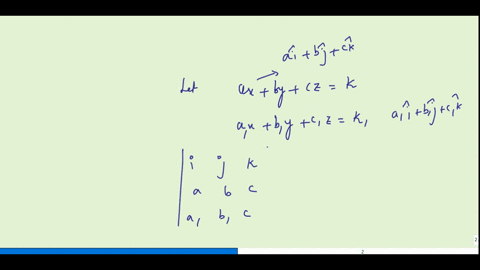 aî + bĵ + ck̂
Let ax + by + cz = k
a₁x + b₁y + c₁z = k₁ a₁î + b₁ĵ + c₁k̂
| i j k
| a b c
| a₁ b₁ c
2
2